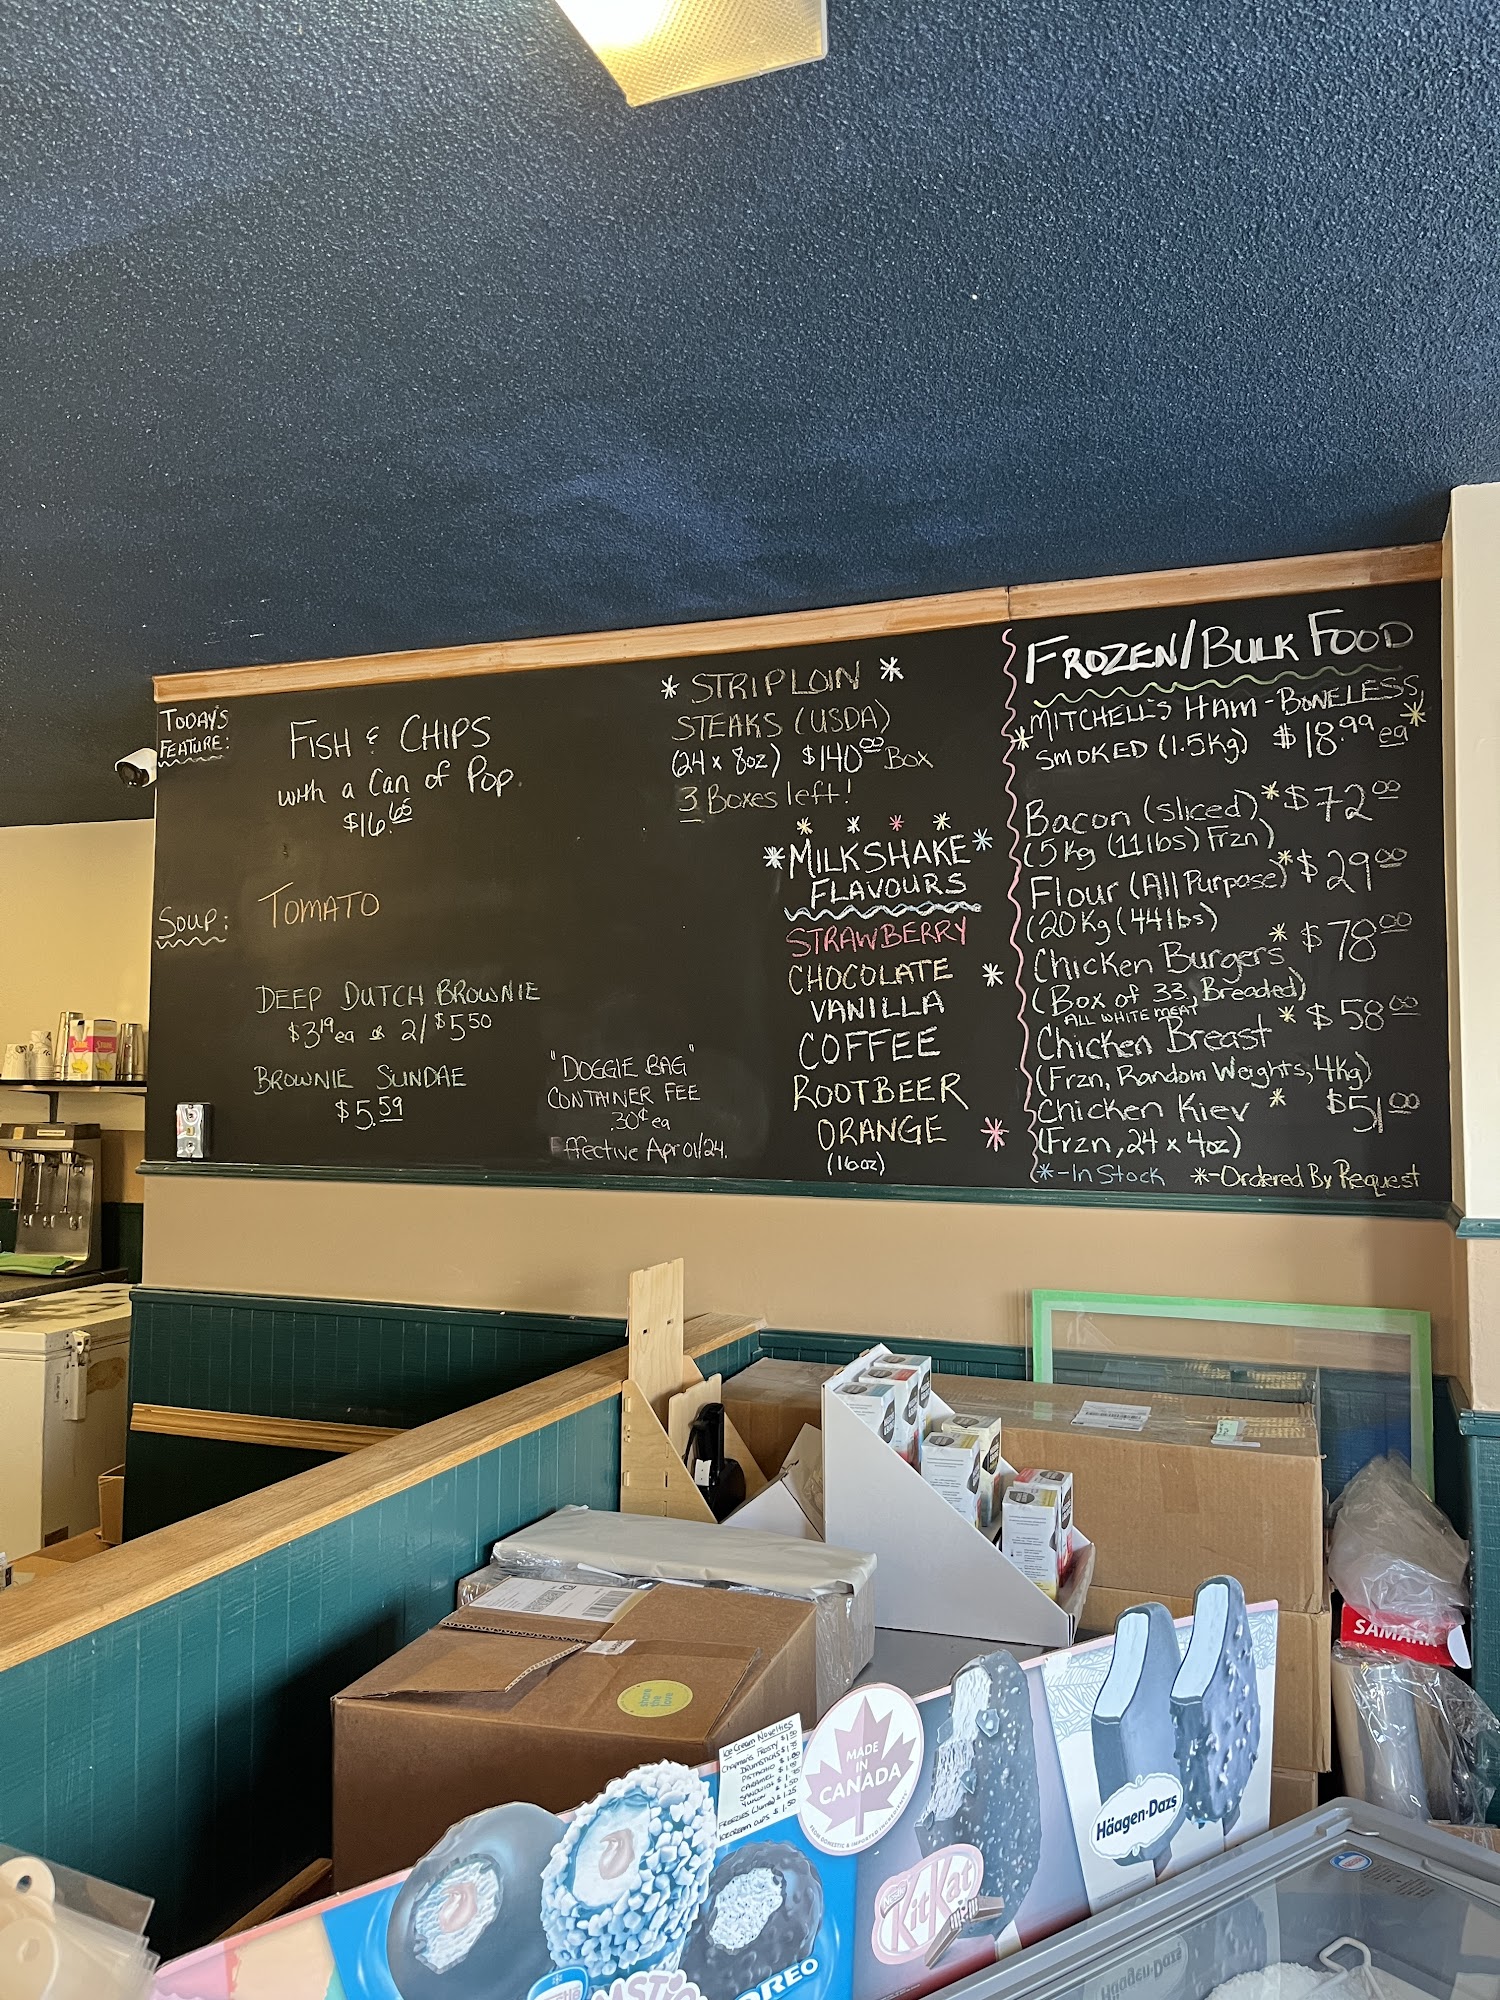 TODAY'S
FEATURE:
FISH & CHIPS
with a Can of Pop.
$16.65
SOUP:
TOMATO
DEEP DUTCH BROWNIE
$3.19 ea or 2/$5.50
BROWNIE SUNDAE
$5.59
"DOGGIE BAG"
CONTAINER FEE
.30¢ ea
Effective Apr 01/24.
* STRIPLOIN *
STEAKS (USDA)
(24 x 8oz) $140.00 Box
3 Boxes left!
*MILKSHAKE*
FLAVOURS
STRAWBERRY
CHOCOLATE *
VANILLA
COFFEE
ROOTBEER
ORANGE *
(16oz)
FROZEN/BULK FOOD
MITCHELL'S HAM - BONELESS,
* SMOKED (1.5Kg) $18.99 ea *
Bacon (sliced) * $72.00
(5Kg (11lbs) Frzn)
Flour (All Purpose) * $29.00
(20Kg (44lbs)
Chicken Burgers * $78.00
(Box of 33, Breaded)
ALL WHITE MEAT
Chicken Breast * $58.00
(Frzn, Random Weights, 4kg)
Chicken Kiev * $51.00
(Frzn, 24 x 4oz)
*-In Stock *-Ordered By Request
share
the
love
Ice Cream Novelties
DRUMSTICKS
PISTACHIO
CARAMEL
SANDWICH
ICECREAM CUPS
MADE
IN
CANADA
Häagen-Dazs
Nestlé
KitKat
OREO
Häagen-Dazs